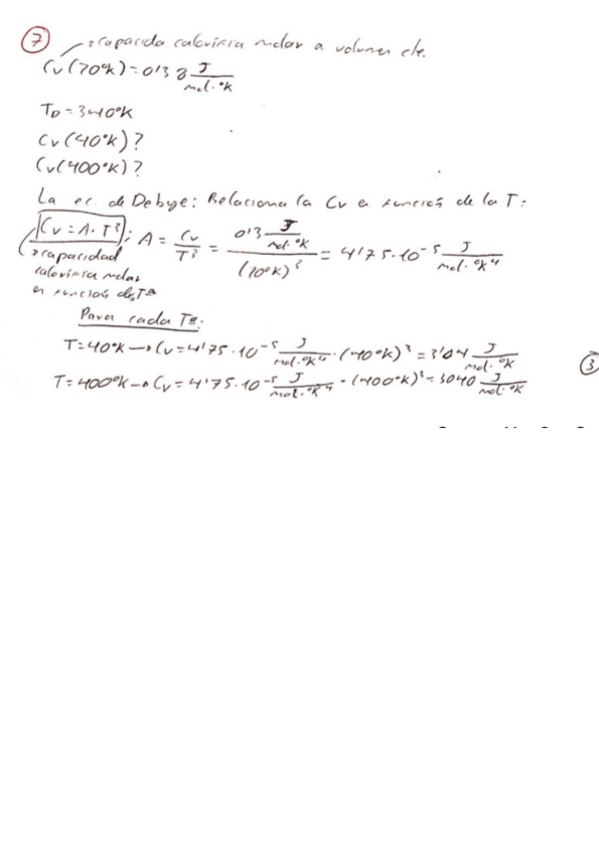 7
capacida calorifica molar a volumen cte.
Cv(20ºK)=0'38 J/mol·ºK
TD=340ºK
Cv(40ºK)?
Cv(400ºK)?
La ec. de Debye: Relaciona la Cv en función de la T:
Cv=A·T³; A = Cv/T³ = 0'3 J/mol·ºK / (20ºK)³ = 4'75·10⁻⁵ J/mol·ºK⁴
capacidad
calorifica molar
en función de Tª
Para cada Tª:
T=40ºK → Cv=4'75·10⁻⁵ J/mol·ºK⁴ · (40ºK)³ = 3'04 J/mol·ºK
T=400ºK → Cv=4'75·10⁻⁵ J/mol·ºK⁴ · (400ºK)³ = 3040 J/mol·ºK
3